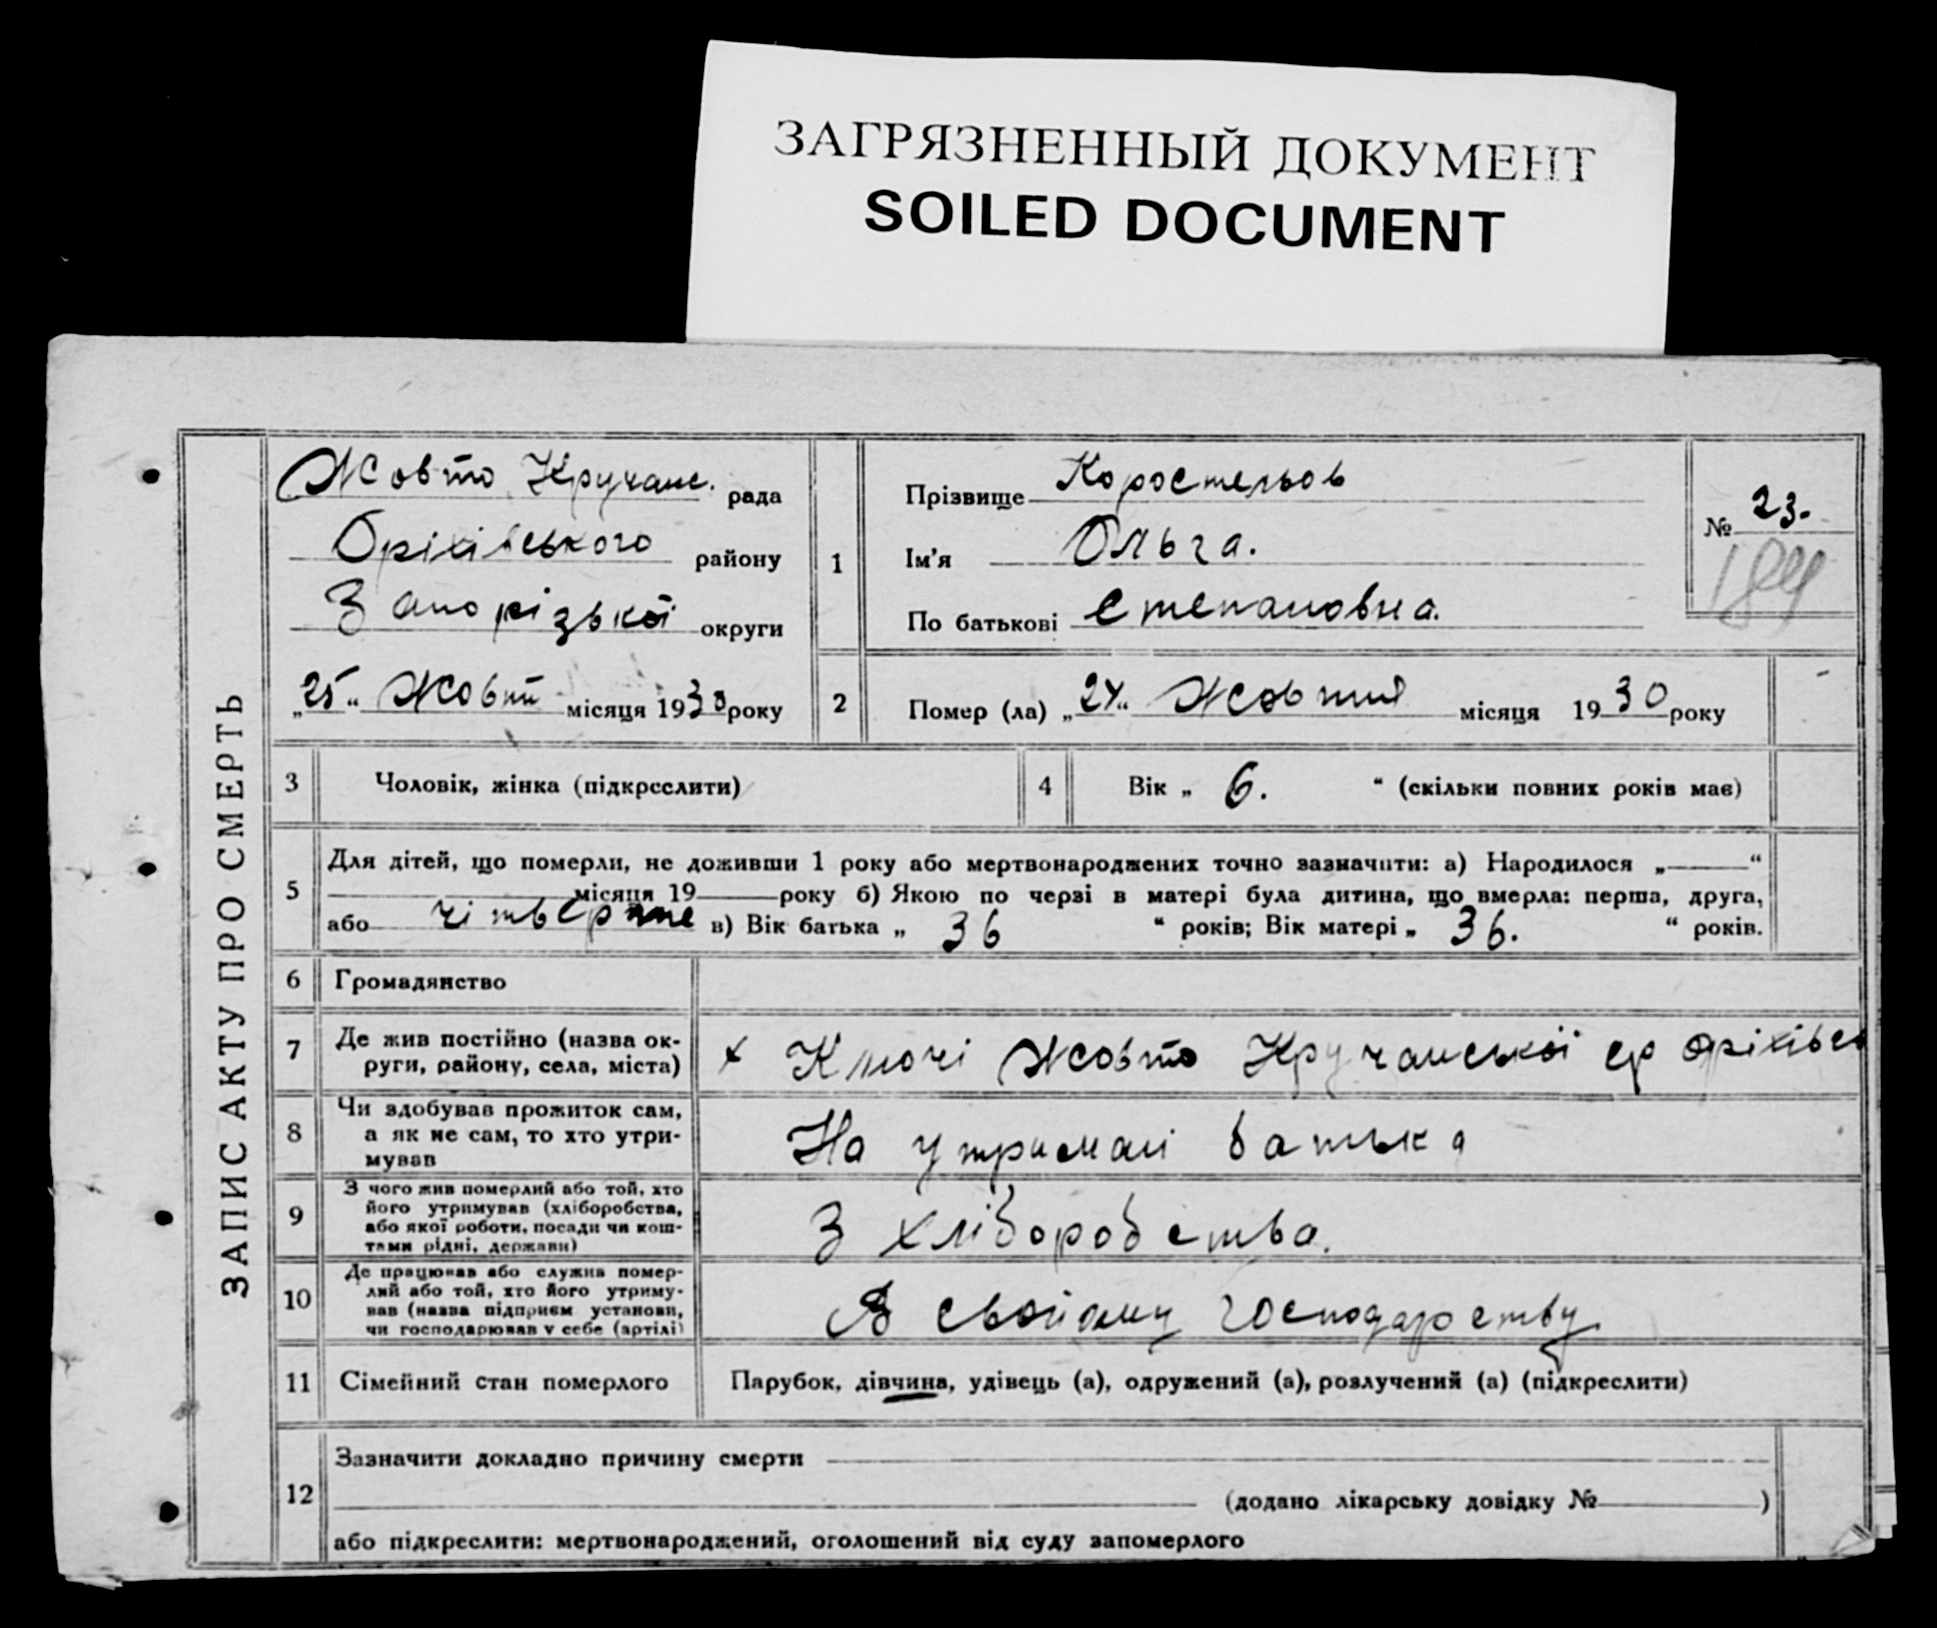 ЗАГРЯЗНЕННЫЙ ДОКУМЕНТ
SOILED DOCUMENT
ЗАПИС АКТУ ПРО СМЕРТЬ
Жовто Кручанс. рада
Оріхівського району
Запорізької округи
„25“ Жовтн місяця 1930 року
1
Прізвище Коростельов
Ім'я Ольга.
По батькові Степановна.
№ 23.
2
Помер (ла) „24“ Жовтня місяця 1930 року
3 Чоловік, жінка (підкреслити)
4 Вік „ 6. “ (скільки повних років має)
5
Для дітей, що померли, не доживши 1 року або мертвонароджених точно зазначити: а) Народилося „ “
місяця 19 року б) Якою по черзі в матері була дитина, що вмерла: перша, друга,
або в) Вік батька „ 36 “ років; Вік матері „ 36. “ років.
6 Громадянство
7 Де жив постійно (назва ок-
руги, району, села, міста)
х Ключі Жовто Кручанської ср Оріхівсь
8 Чи здобував прожиток сам,
а як не сам, то хто утри-
мував
На утримані батька
9 З чого жив померлий або той, хто
його утримував (хліборобства,
або якої роботи, посади чи кош-
тами рідні, держави)
З хліборобства.
10 Де працював або служив помер-
лий або той, хто його утриму-
вав (назва підприєм установи,
чи господарював у себе (артілі)
В свойому господарству.
11 Сімейний стан померлого
Парубок, дівчина, удівець (а), одружений (а), розлучений (а) (підкреслити)
12
Зазначити докладно причину смерти
(додано лікарську довідку № )
або підкреслити: мертвонароджений, оголошений від суду запомерлого